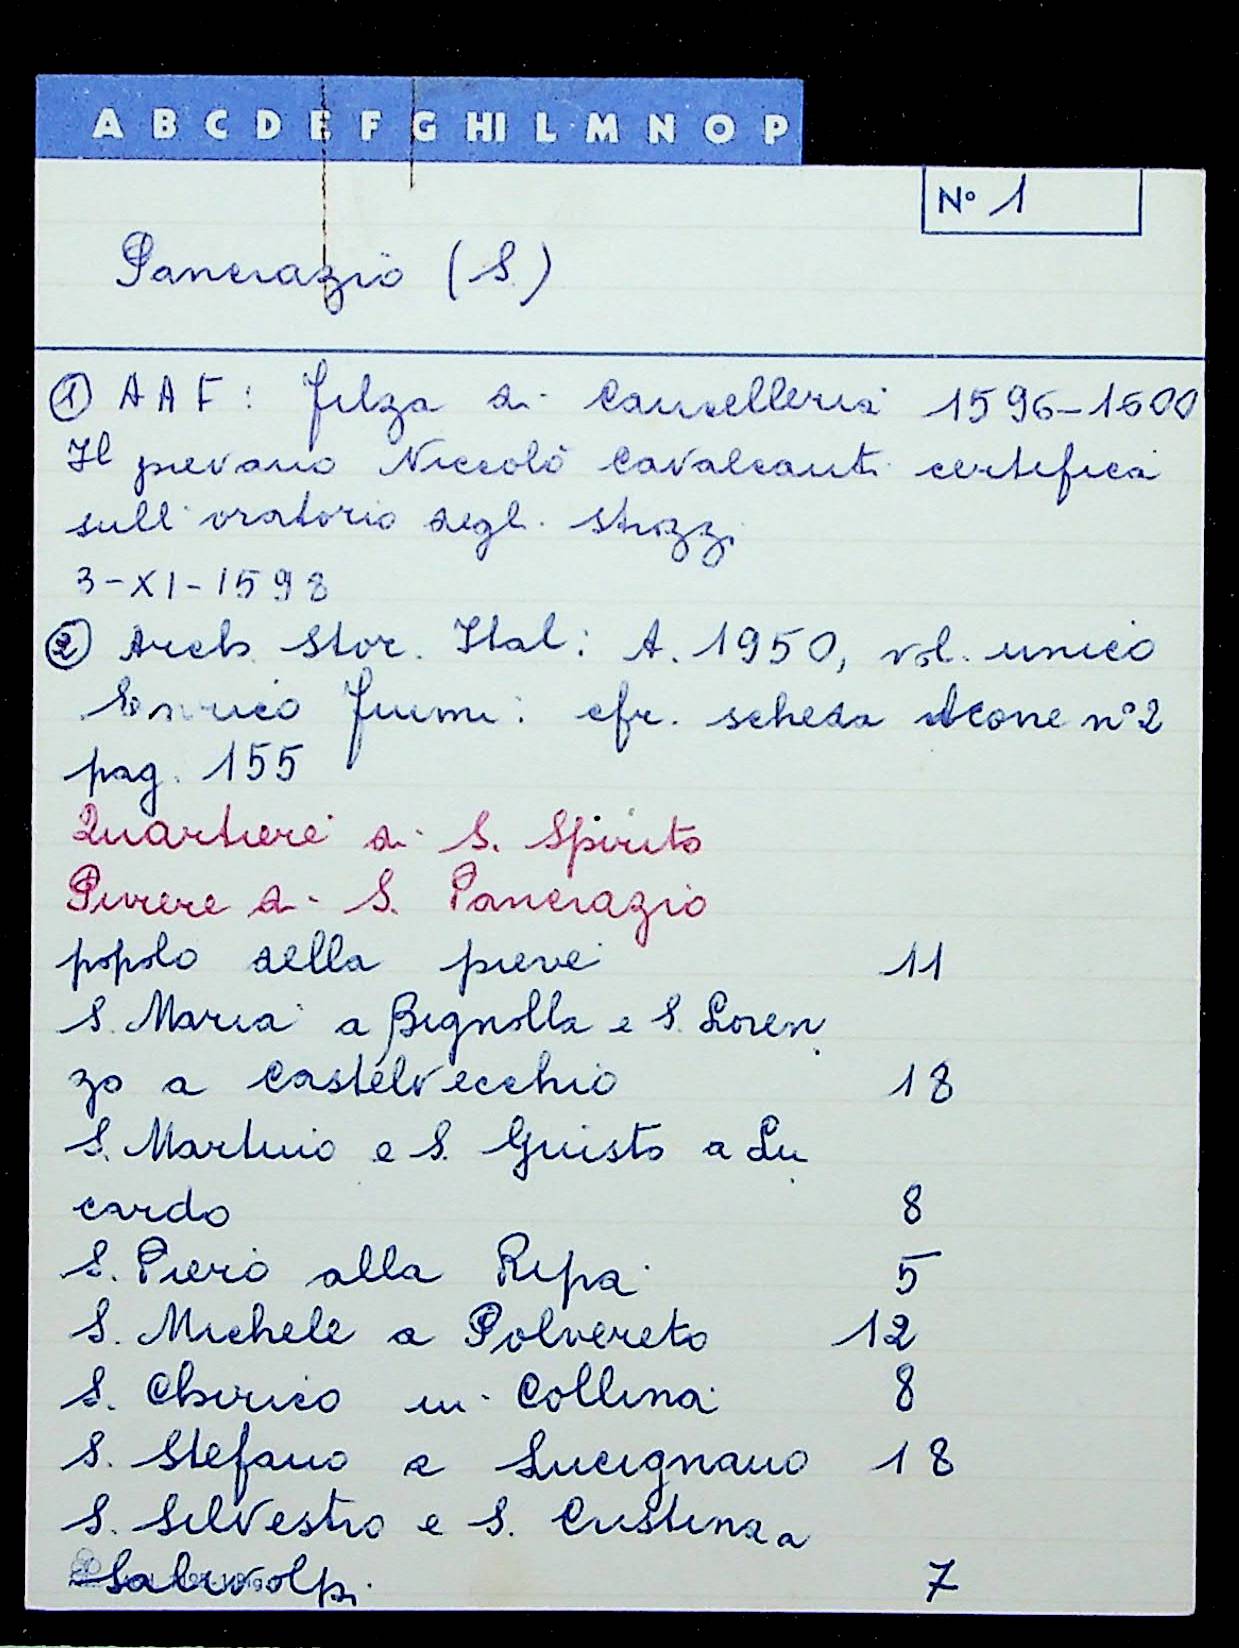 A B C D E F G HI L M N O P
N° 1
Pancrazio (S.)
① A A F : filza di Cancelleria 1596-1600
Il pievano Niccolò Cavalcanti certifica
sull'oratorio degli Strozzi
3-XI-1598
② Arch. Stor. Ital: A. 1950, vol. unico
Enrico Fiumi: cfr. scheda Acone n°2
pag. 155
Quartiere di S. Spirito
Piviere di S. Pancrazio
popolo della pieve 11
S. Maria a Bignolla e S. Loren
zo a Castelvecchio 18
S. Martino e S. Giusto a Lu
cardo 8
S. Piero alla Ripa 5
S. Michele a Polvereto 12
S. Chirico in Collina 8
S. Stefano a Lucignano 18
S. Silvestro e S. Cristina a
Salivolpi 7